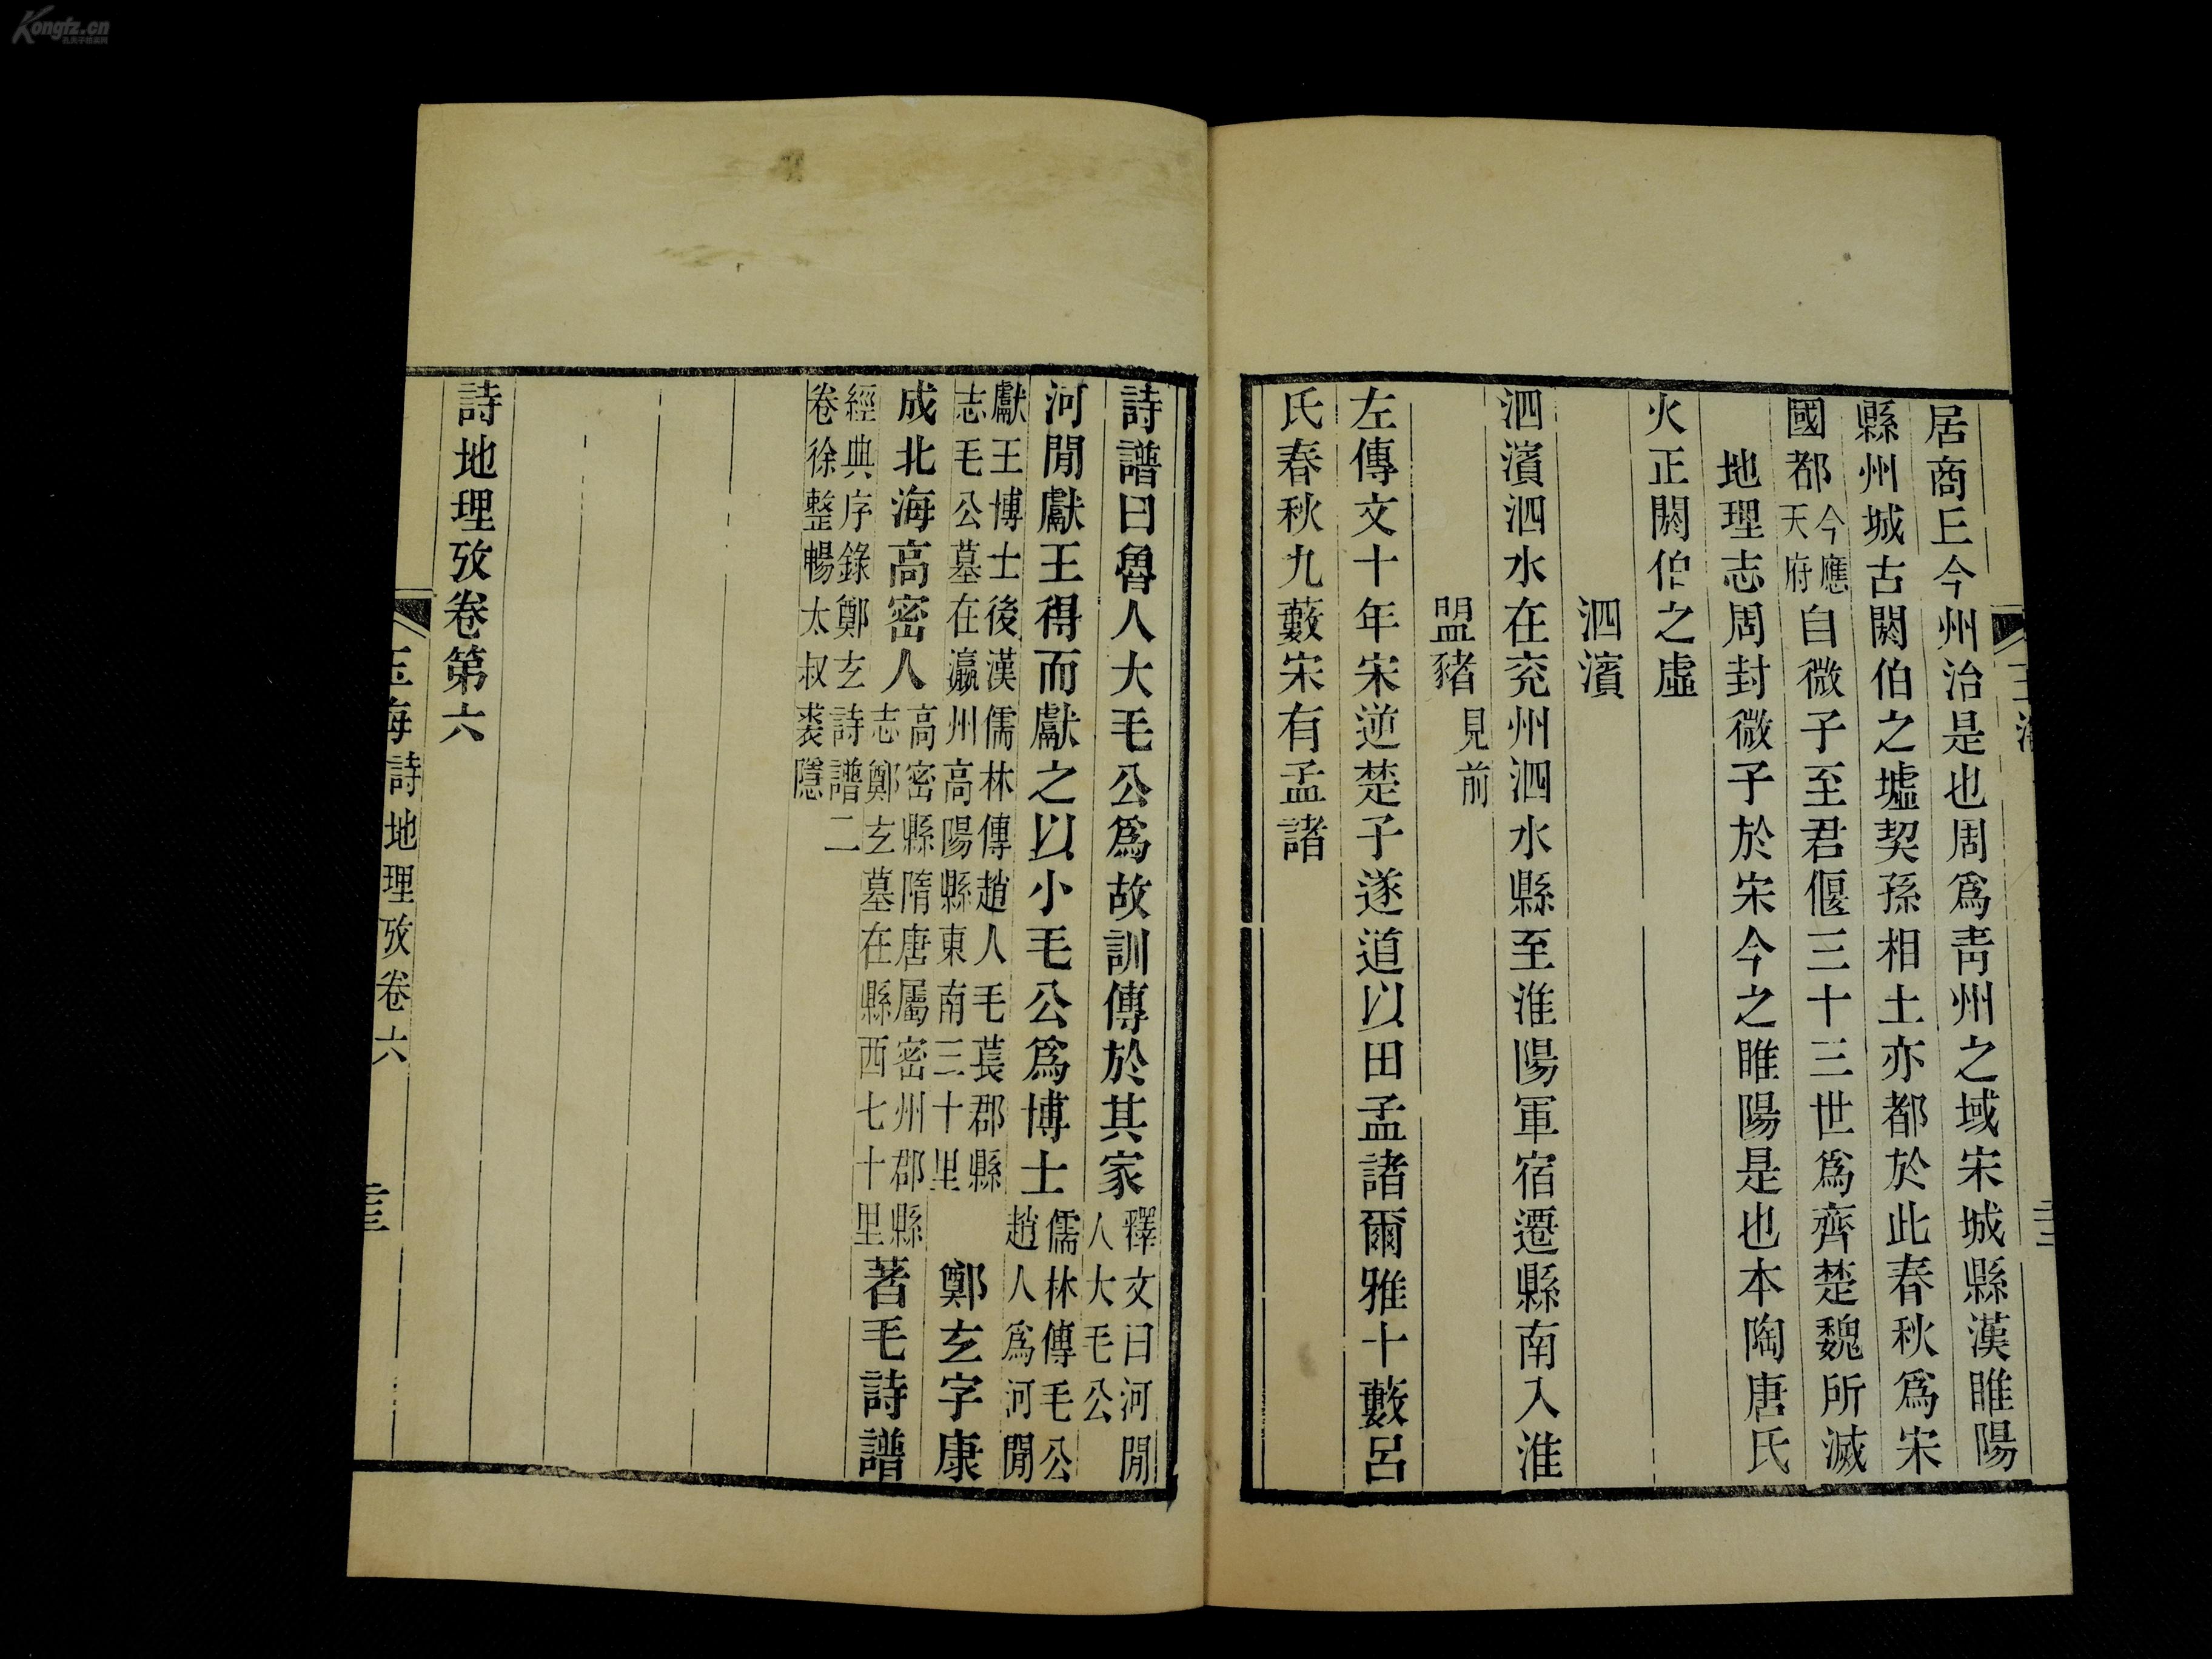 居商丘今州治是也周爲靑州之域宋城縣漢睢陽
縣州城古閼伯之墟契孫相土亦都於此春秋爲宋
國都今應天府自微子至君偃三十三世爲齊楚魏所滅
地理志周封微子於宋今之睢陽是也本陶唐氏
火正閼伯之虛
泗濱
泗濱泗水在兖州泗水縣至淮陽軍宿遷縣南入淮
盟豬見前
左傳文十年宋逆楚子遂道以田孟諸爾雅十藪呂
氏春秋九藪宋有孟諸
詩譜曰魯人大毛公爲故訓傳於其家釋文曰河閒人大毛公
河閒獻王得而獻之以小毛公爲博士儒林傳毛公趙人爲河閒
獻王博士後漢儒林傳趙人毛萇郡縣志毛公墓在瀛州高陽縣東南三十里鄭玄字康
成北海高密人高密縣隋唐屬密州郡縣志鄭玄墓在縣西七十里著毛詩譜
經典序錄鄭玄詩譜二卷徐整暢太叔裘隱
詩地理攷卷第六
玉海詩地理攷卷六
Kongfz.cn